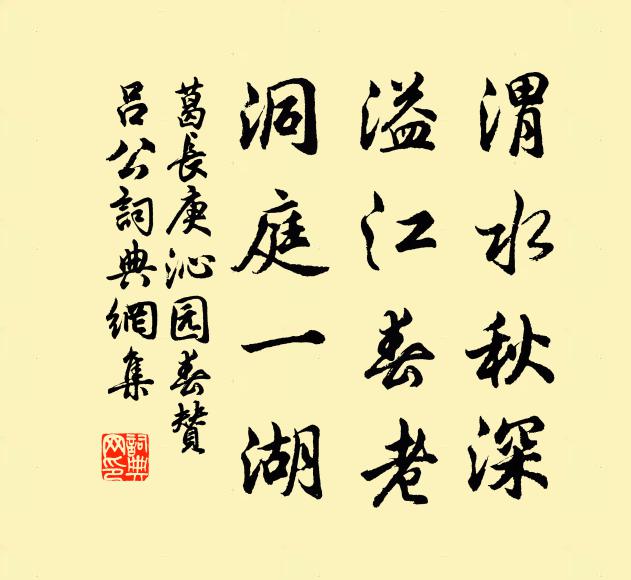 渭水秋深
溢江春老
洞庭一湖
葛長庚沁园春賛
吕公詞典網集
詞典网印